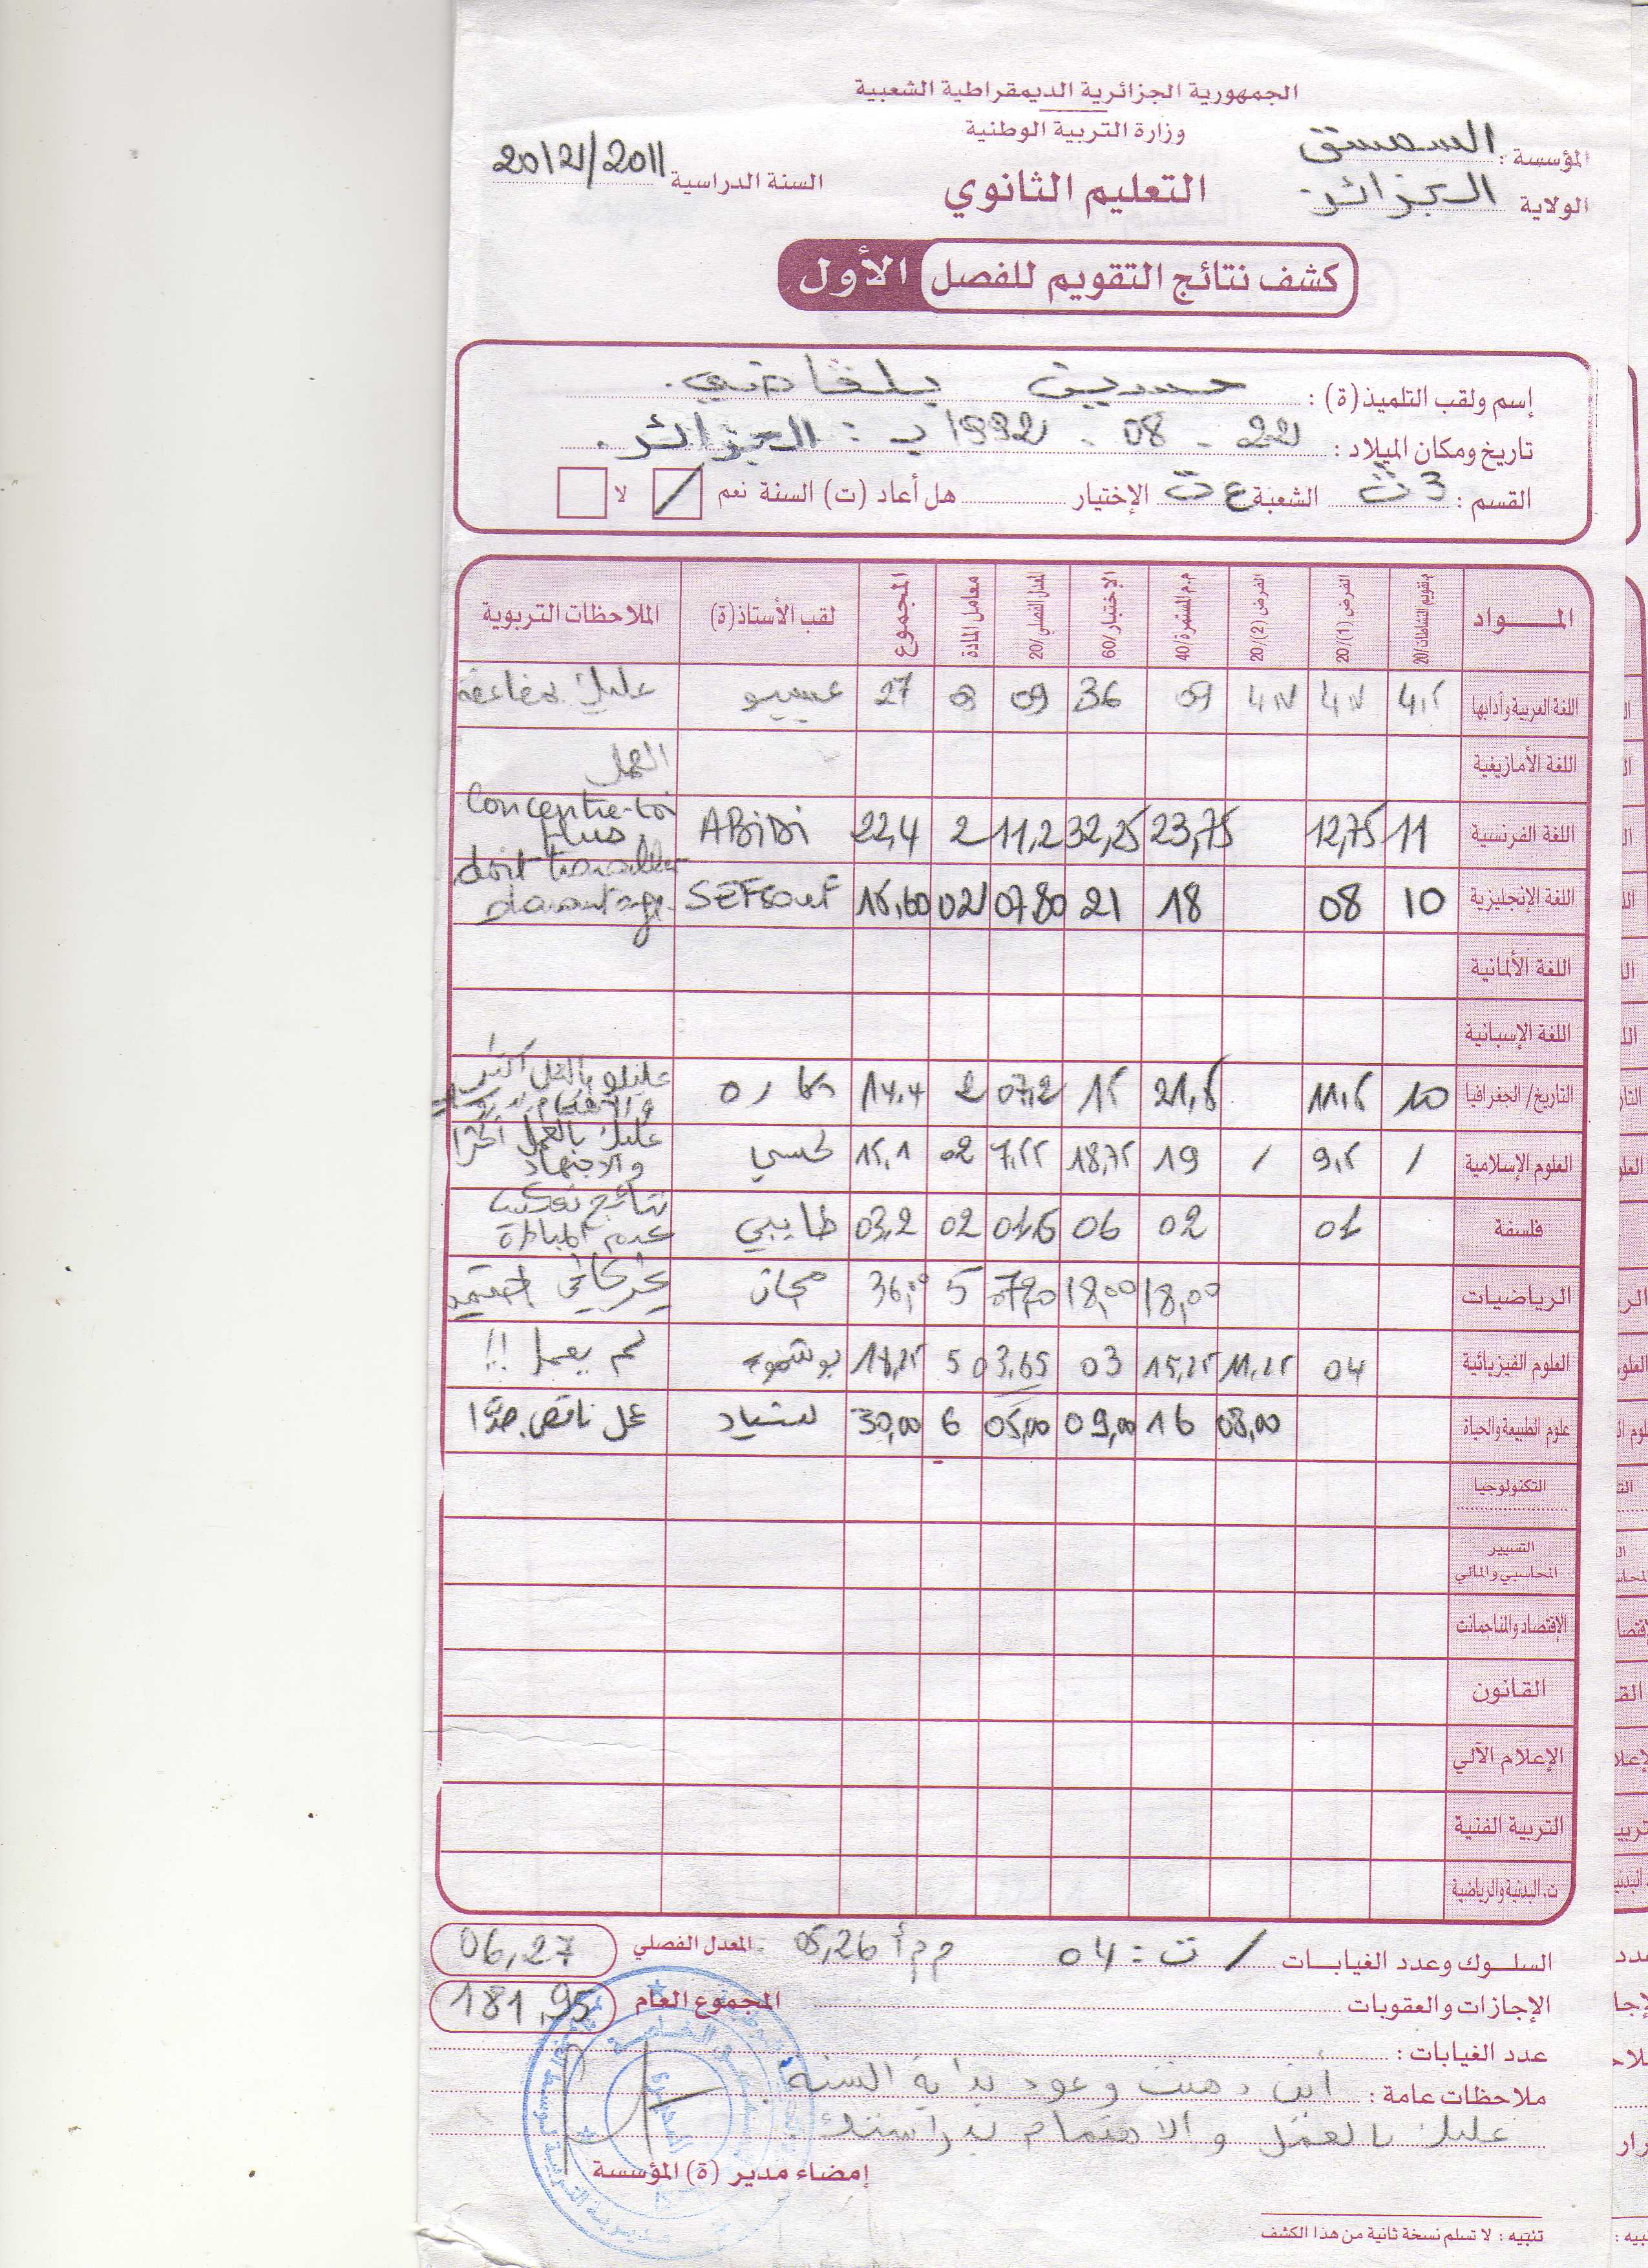 الجمهورية الجزائرية الديمقراطية الشعبية
وزارة التربية الوطنية
المؤسسة :
الولاية الجزائر
التعليم الثانوي
السنة الدراسية 2012/2011
كشف نتائج التقويم للفصل الأول
إسم ولقب التلميذ (ة) : حسين بلقاضي
تاريخ ومكان الميلاد : 22 - 08 - 1992 بـ : الجزائر.
القسم : 3 ث الشعبة ع ت الإختيار هل أعاد (ت) السنة نعم / لا
المـــواد م.تقويم النشاطات/20 الفرض (1)/20 الفرض (2)/20 م.م المستمرة/40 الإختبار/60 المعدل الفصلي/20 معامل المادة المجموع لقب الأستاذ(ة) الملاحظات التربوية
اللغة العربية وأدابها 09 36 09 27 عليك بمضاعفة
اللغة الأمازيغية العمل
اللغة الفرنسية 11 12,75 23,75 32,25 11,2 2 22,4 ABiDi Concentre-toi plus
اللغة الإنجليزية 10 08 18 21 07.80 02 15,60 doit travailler davantage
اللغة الألمانية
اللغة الإسبانية
التاريخ/ الجغرافيا 10 11,5 21,5 15 07,2 2 14,4
العلوم الإسلامية / 9,5 / 19 18,75 7,55 02 15,1 عليك بالعمل أكثر والاجتهاد
فلسفة 01 02 06 01,6 02 03,2 طايبي نتائج تعكس عدم المبالاة
الرياضيات 18,00 18,00 07,20 5 36,00
العلوم الفيزيائية 04 11,25 15,25 03 03,65 5 18,25 لم يعمل !!
علوم الطبيعة والحياة 08,00 16 09,00 05,00 6 30,00 عمل ناقص جدا
التكنولوجيا
التسيير المحاسبي والمالي
الإقتصاد والمناجمانت
القانون
الإعلام الآلي
التربية الفنية
ت. البدنية والرياضية
السلـــوك وعدد الغيابــات / ت : 04 م م أ 05,26 المعدل الفصلي 06,27
الإجازات والعقوبات المجموع العام 181,95
عدد الغيابات :
ملاحظات عامة : أين ذهبت وعود بداية السنة
عليك بالعمل و الاهتمام بدراستك
إمضاء مدير (ة) المؤسسة
تنبيه : لا تسلم نسخة ثانية من هذا الكشف